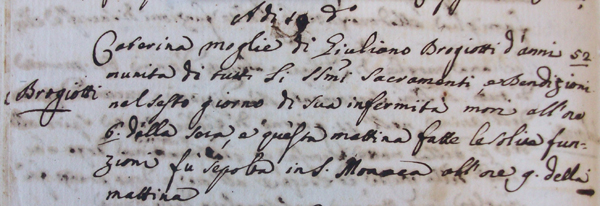 Adi 19 d.º
Caterina moglie di Giuliano Brogiotti d'anni 52
munita di tutti li SSmi Sacramenti, e Bendizioni
Brogiotti
nel sesto giorno di sua infermità morì all'ore
6. della sera, e questa mattina fatte le solite fun-
zioni fu sepolta in S. Monaca all'ore 9. della
mattina